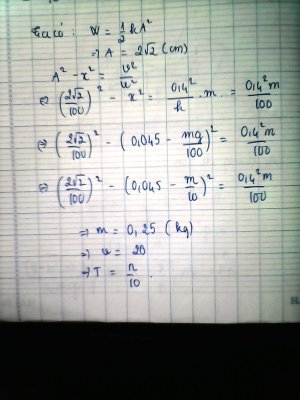 Ta có : W = 1/2 kA²
⇒ A = 2√2 (cm)
A² - x² = v²/ω²
⇔ (2√2/100)² - x² = 0,4²/k . m = 0,4² m/100
⇔ (2√2/100)² - (0,045 - mg/100)² = 0,4² m/100
⇔ (2√2/100)² - (0,045 - m/10)² = 0,4² m/100
⇒ m = 0,25 (kg)
⇒ ω = 20
⇒ T = π/10 .